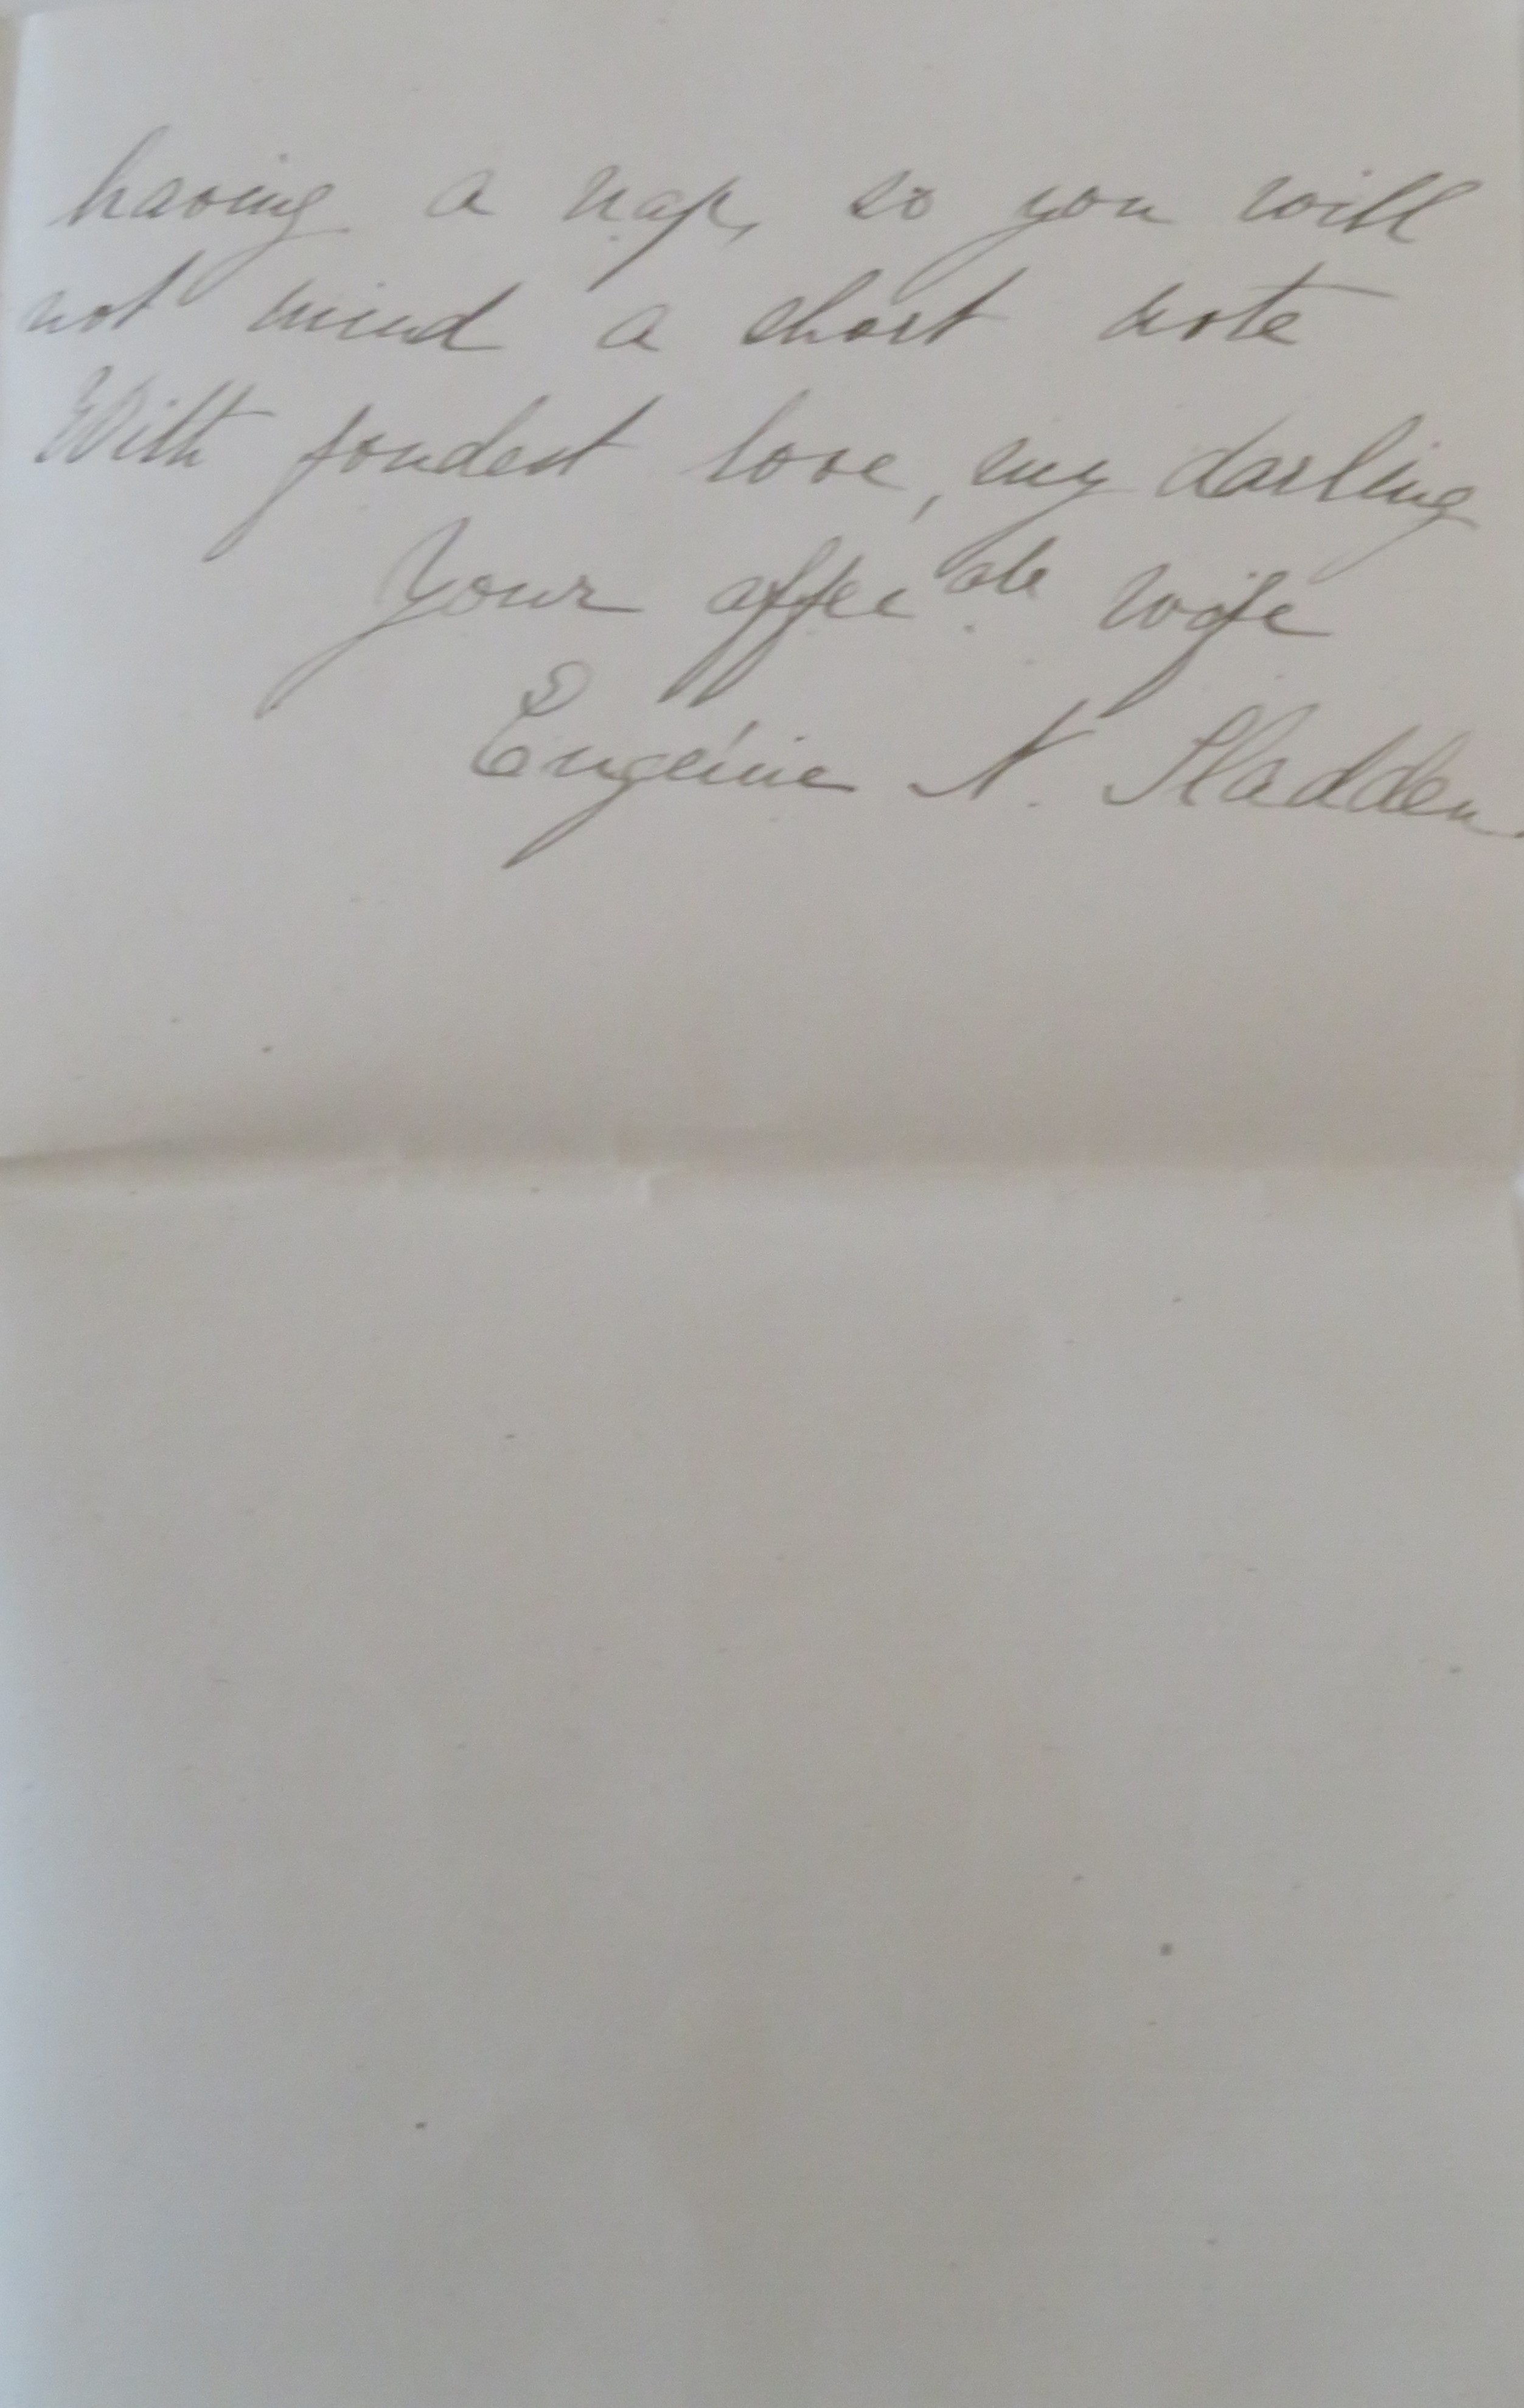 having a nap, so you will
not mind a short note
With fondest love, my darling
Your affec ate wife
Eugénie N. Sladden.